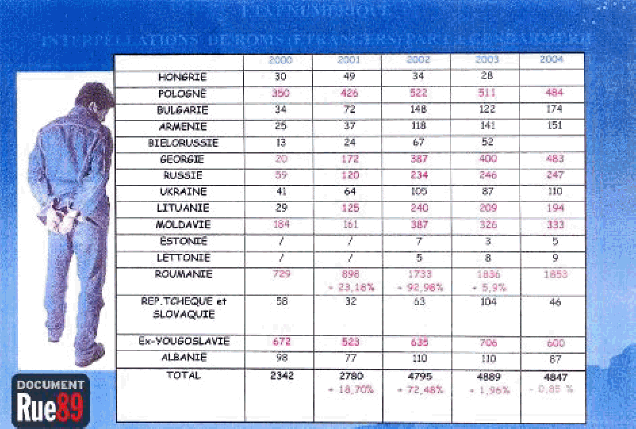 ETAT NUMERIQUE
INTERPELLATIONS DE ROMS (ETRANGERS) PAR LA GENDARMERIE
2000 2001 2002 2003 2004
HONGRIE 30 49 34 28
POLOGNE 350 426 522 511 484
BULGARIE 34 72 148 122 174
ARMENIE 25 37 118 141 151
BIELORUSSIE 13 24 67 52
GEORGIE 20 172 387 400 483
RUSSIE 59 120 234 246 247
UKRAINE 41 64 105 87 110
LITUANIE 29 125 240 209 194
MOLDAVIE 184 161 387 326 333
ESTONIE / / 7 3 5
LETTONIE / / 5 8 9
ROUMANIE 729 898 1733 1836 1853
+ 23,18% + 92,98% + 5,9%
REP.TCHEQUE et 58 32 63 104 46
SLOVAQUIE
Ex-YOUGOSLAVIE 672 523 635 706 600
ALBANIE 98 77 110 110 87
TOTAL 2342 2780 4795 4889 4847
+ 18,70% + 72,48% + 1,96% - 0,85 %
DOCUMENT
Rue89